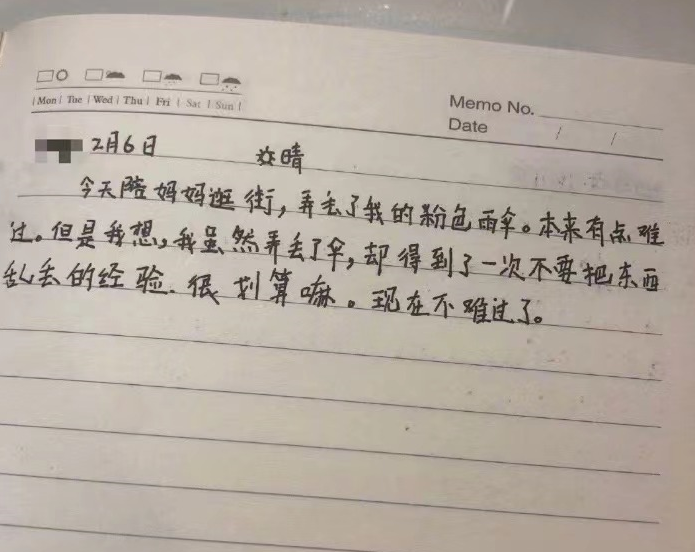 Mon Tue Wed Thu Fri Sat Sun
Memo No.
Date / /
2月6日 晴
今天陪妈妈逛街，弄丢了我的粉色雨伞。本来有点难
过。但是我想，我虽然弄丢了伞，却得到了一次不要把东西
乱丢的经验、很划算嘛。现在不难过了。